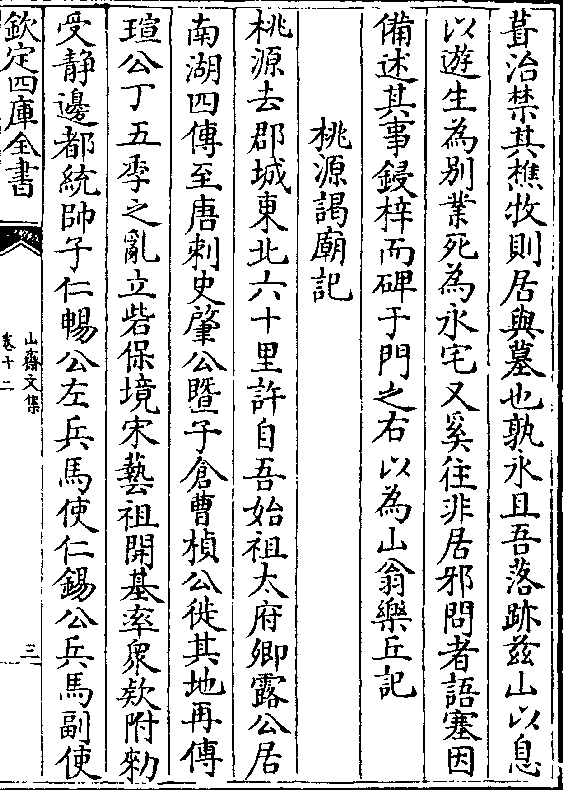 葺治禁其樵牧則居與墓也孰永且吾落跡兹山以息
以遊生為別業死為永宅又奚往非居邪問者語塞因
備述其事鋟梓而碑于門之右以為山翁樂丘記
桃源謁廟記
桃源去郡城東北六十里許自吾始祖太府卿露公居
南湖四傳至唐刺史肇公暨子倉曹楨公徙其地再傳
瑄公丁五季之亂立砦保境宋藝祖開基率衆欵附勑
受静邊都統帥子仁暢公左兵馬使仁錫公兵馬副使
欽定四庫全書
山齋文集
卷十二
三